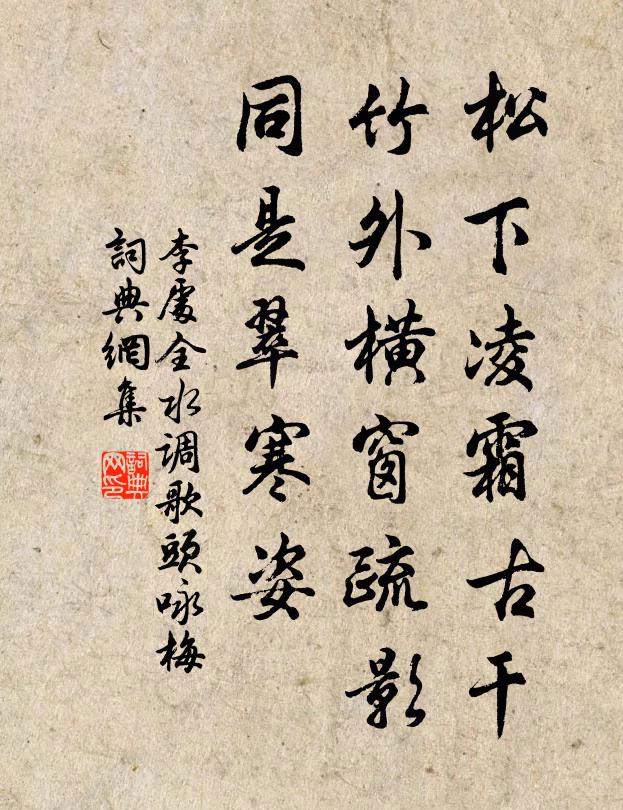 松下凌霜古干
竹外横窗疏影
同是翠寒姿
李處全水调歌頭咏梅
詞典網集
詞典网印